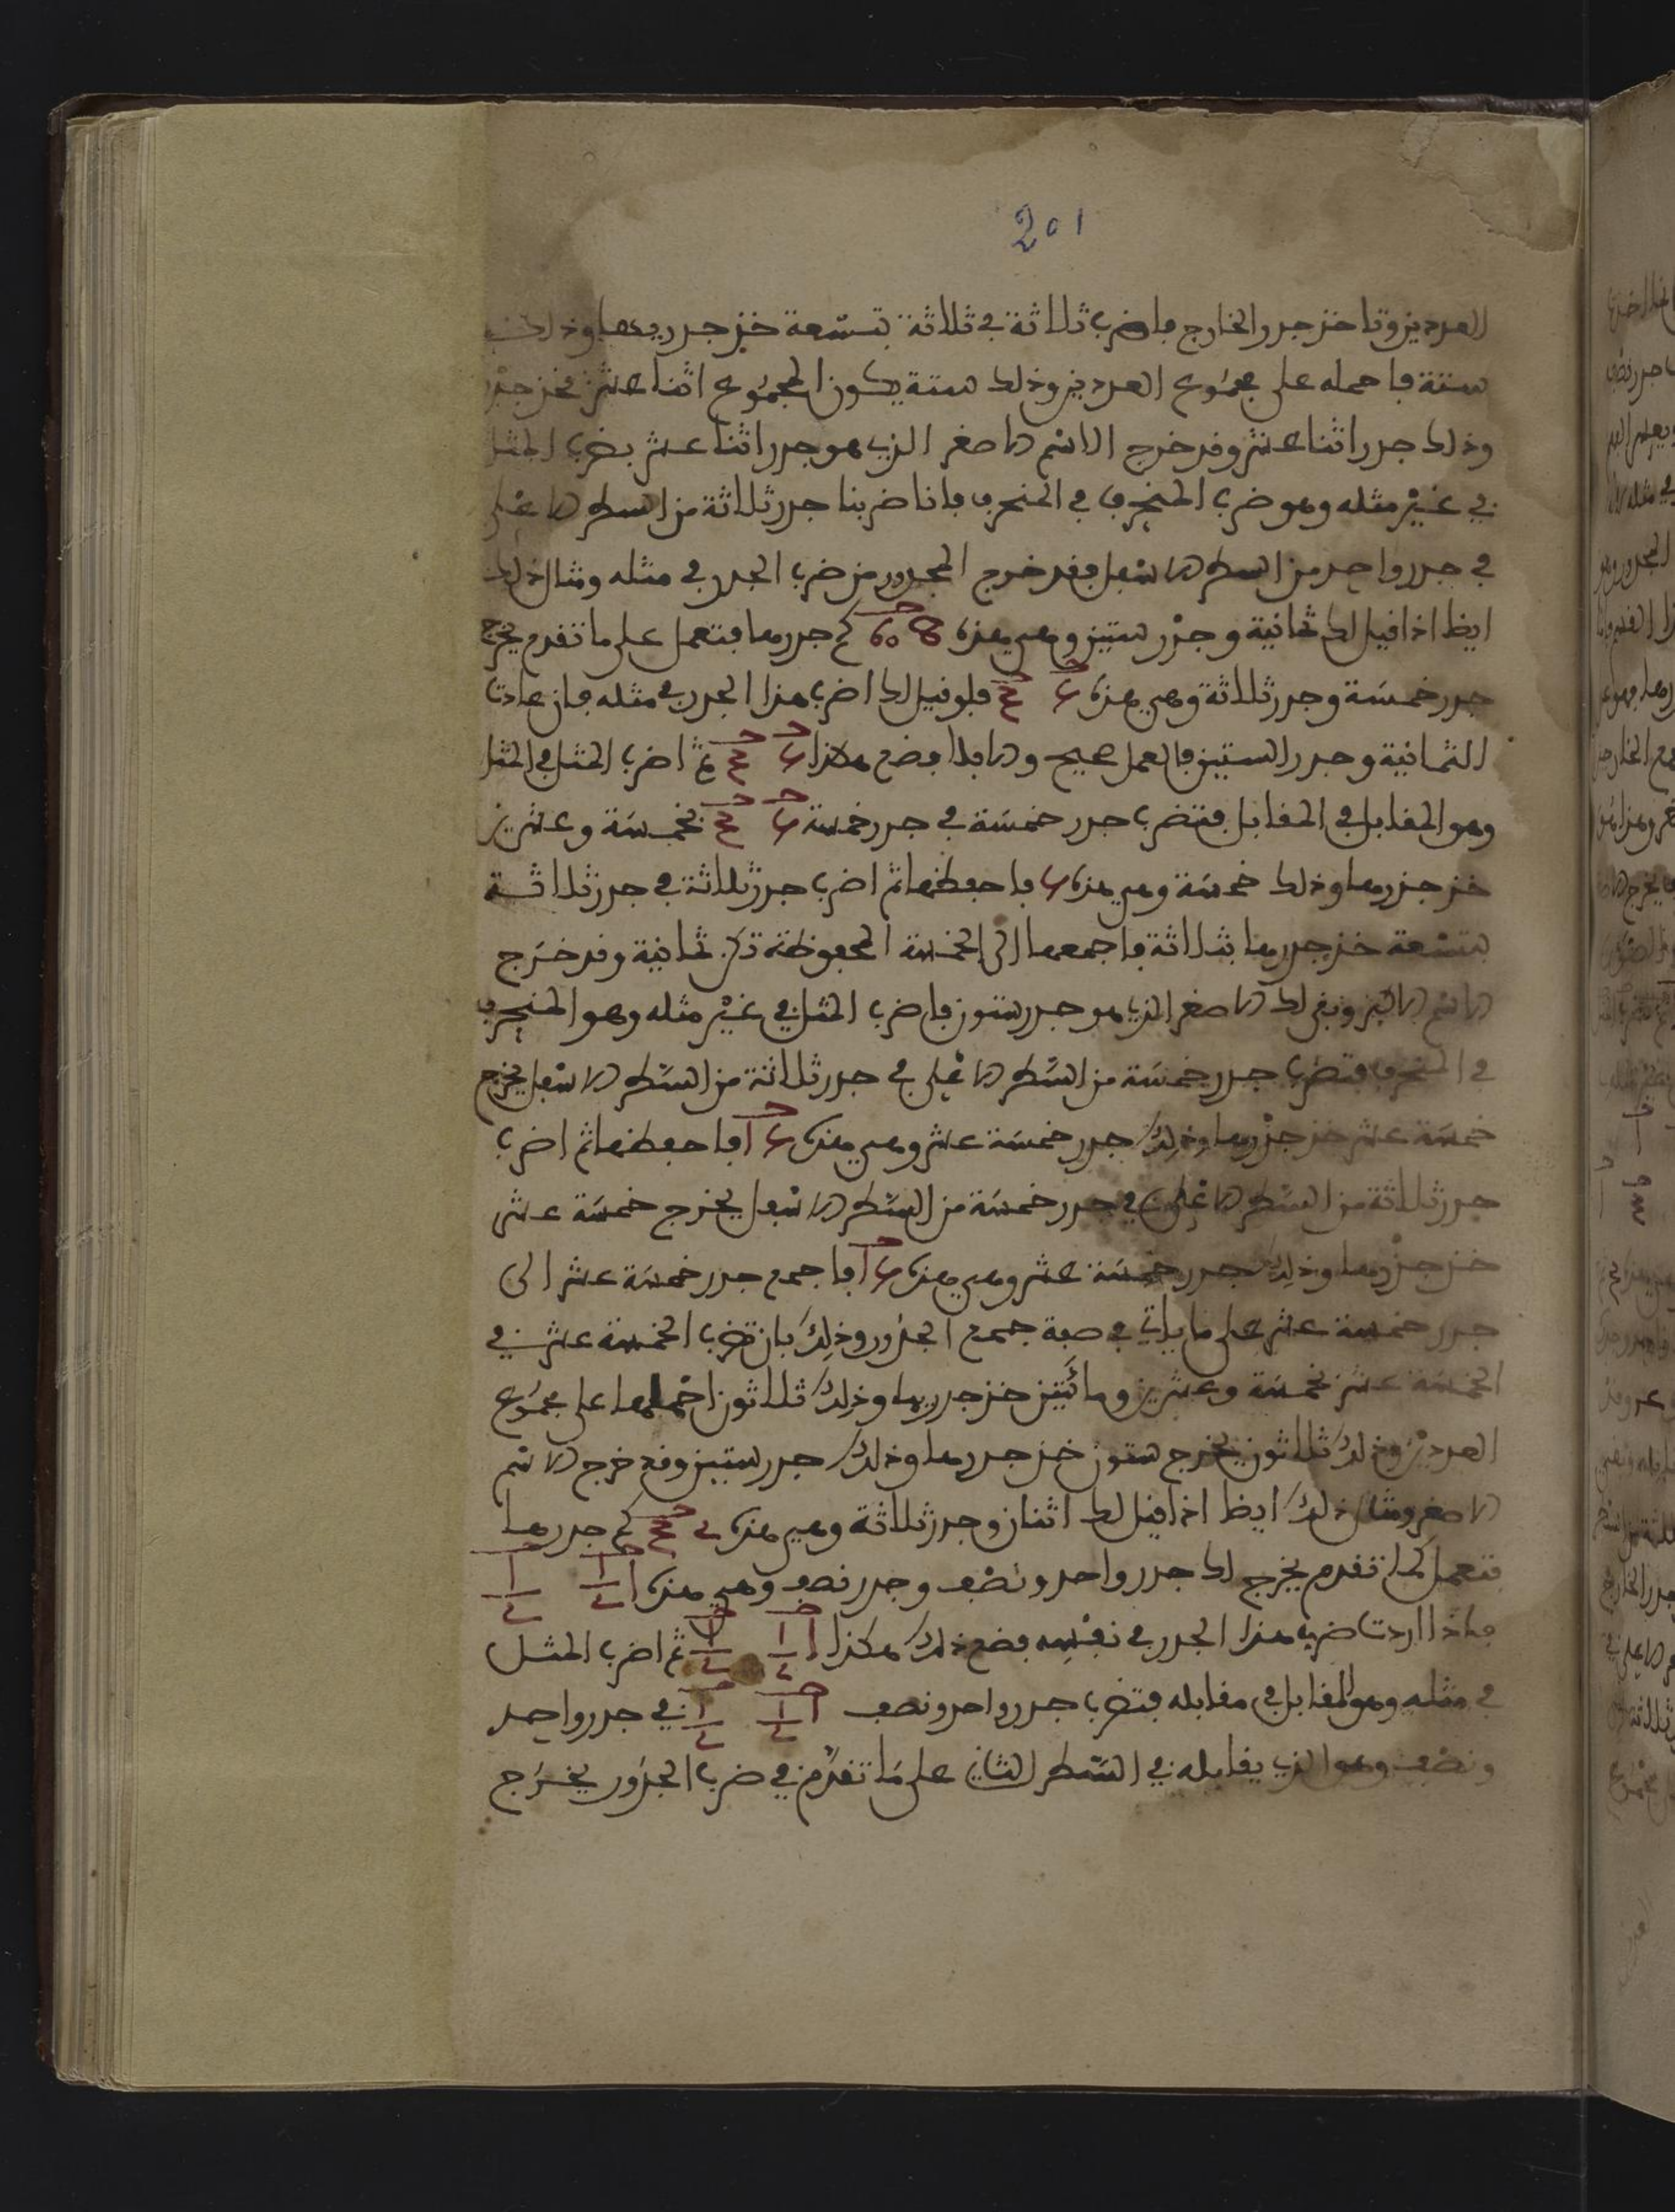 201
العددين وتاخذ جذر الخارج فاضرب ثلاثة في ثلاثة بتسعة خذ جذر ربعها وذلك
ستة فاحمله على مجموع العددين وذلك ستة يكون المجموع اثنا عشر فخذ جذره
وذلك جذر اثنا عشر وقد خرج الاسم الاصغر الذي هو جذر اثنا عشر بضرب المثل
في غير مثله وهو ضرب المنحرف في المنحرف فانا ضربنا جذر ثلاثة من السطر الاعلى
في جذر واحد من السطر الاسفل فقد خرج المجذور من ضرب الجذر في مثله ومثال ذلك
ايظا اذا قيل لك ثمانية وجذر ستين وهي هذه 8 60 كم جذرها فتعمل على ما تقدم يخرج
جذر خمسة وجذر ثلاثة وهي هذه 5 3 فلو قيل لك اضرب هذا الجذر في مثله فان عادت
الثمانية وجذر الستين فالعمل صحيح والا فلا فضع هكذا 5 3 ثم اضرب المثل في المثل
وهو المقابل في المقابل فتضرب جذر خمسة في جذر خمسة 5 3 بخمسة وعشرين
خذ جذرها وذلك خمسة وهي هذه 5 فاحفظها ثم اضرب جذر ثلاثة في جذر ثلاثة
بتسعة خذ جذرها بثلاثة فاجمعها الى الخمسة المحفوظة تكن ثمانية وقد خرج
الاسم الاكبر وبقي لك الاصغر الذي هو جذر ستون فاضرب المثل في غير مثله وهو المنحرف
في المنحرف فتضرب جذر خمسة من السطر الاعلى في جذر ثلاثة من السطر الاسفل يخرج
خمسة عشر خذ جذرها وذلك جذر خمسة عشر وهي هذه 15 فاحفظها ثم اضرب
جذر ثلاثة من السطر الاعلى في جذر خمسة من السطر الاسفل يخرج خمسة عشر
خذ جذرها وذلك جذر خمسة عشر وهي هذه 15 فاجمع جذر خمسة عشر الى
جذر خمسة عشر على ما ياتي في صفة جمع الجذور وذلك بان تضرب الخمسة عشر في
الخمسة عشر بخمسة وعشرين ومائتين خذ جذريها وذلك ثلاثون احملها على مجموع
العددين وذلك ثلاثون يخرج ستون خذ جذرها وذلك جذر ستين وقد خرج الاسم
الاصغر ومثال ذلك ايظا اذا قيل لك اثنان وجذر ثلاثة وهي هذه 2 3 كم جذرها
فتعمل كما تقدم يخرج لك جذر واحد ونصف وجذر نصف وهي هذه 1 1/2 1/2
فاذا اردت ضرب هذا الجذر في نفسه فضع ذلك هكذا 1 1/2 1/2 ثم اضرب المثل
في مثله وهو المقابل في مقابله فتضرب جذر واحد ونصف 1 1/2 1/2 في جذر واحد
ونصف وهو الذي يقابله في السطر الثاني على ما تقدم في ضرب الجذور يخرج